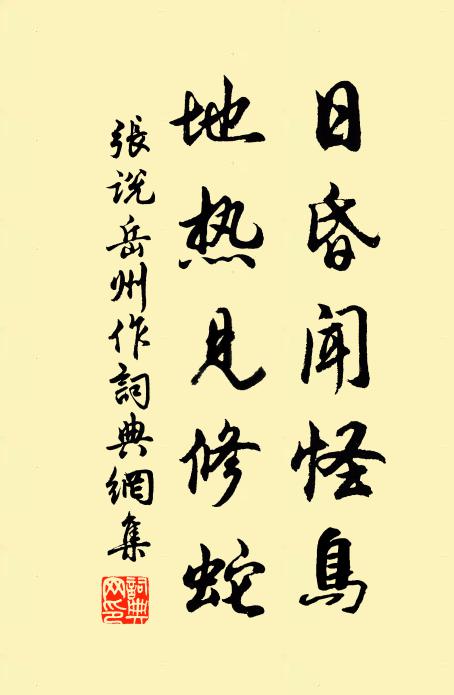 日昏闻怪鸟
地热见修蛇
張说岳州作詞典網集
詞典网印